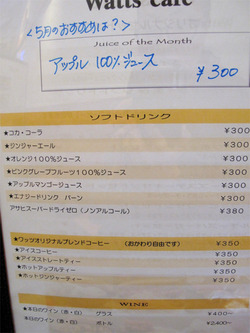 Watts cafe
<5月のおすすめは?>
Juice of the Month
アップル 100%ジュース
¥300
ソフトドリンク
★コカ・コーラ ¥300
★ジンジャーエール ¥300
★オレンジ100%ジュース ¥300
★ピンクグレープフルーツ100%ジュース ¥300
★アップルマンゴージュース ¥300
★エナジードリンク バーン ¥300
アサヒスーパードライゼロ(ノンアルコール) ¥380
★ワッツオリジナルブレンドコーヒー (おかわり自由です) ¥350
★アイスコーヒー ¥350
★アイスストレートティー ¥350
★ホットアップルティー ¥350
★ホットジンジャーティー ¥350
WINE
★本日のワイン(赤・白) グラス ¥400~
★本日のワイン(赤・白) ボトル ¥2400~